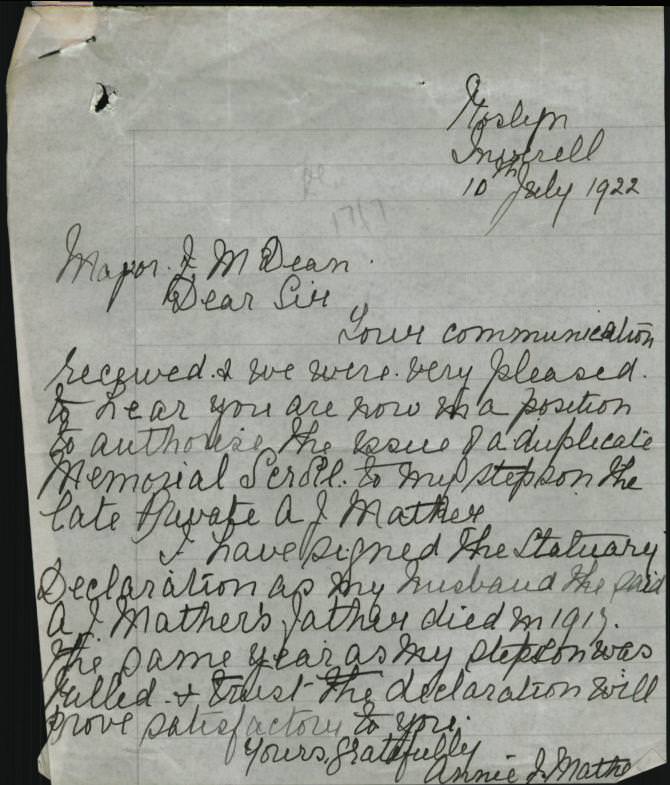 Roslyn
Inverell
10th July 1922
1717
Major J. M Dean.
Dear Sir
Your communication
received. & we were. very pleased.
to hear you are now in a position
to authorise the issue of a duplicate
Memorial Scroll. to my stepson the
late Private A J Mather
I have signed the Statuary
Declaration as my husband the said
A J. Mather's father died in 1917.
the same year as my stepson was
killed. & trust the declaration will
prove satisfactory to you.
Yours, gratefully
Annie J. Mathe